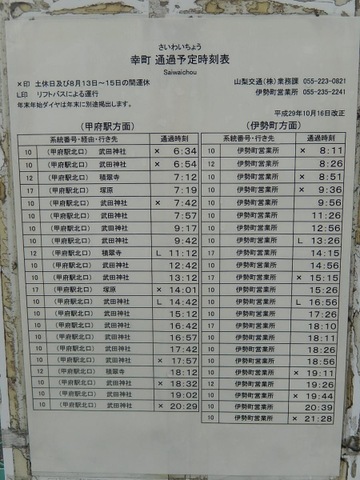 さいわいちょう
幸町 通過予定時刻表
Saiwaichou
×印 土休日及び8月13日~15日の間運休
L印 リフトバスによる運行
年末年始ダイヤは年末に別途掲出します。
山梨交通(株)業務課 055-223-0821
伊勢町営業所 055-235-2241
平成29年10月16日改正
(甲府駅方面)
系統番号・経由・行き先 通過時刻
10 (甲府駅北口) 武田神社 × 6:34
10 (甲府駅北口) 武田神社 × 6:54
12 (甲府駅北口) 積翠寺 7:12
17 (甲府駅北口) 塚原 7:19
10 (甲府駅北口) 武田神社 × 7:42
10 (甲府駅北口) 武田神社 8:07
10 (甲府駅北口) 武田神社 9:17
10 (甲府駅北口) 武田神社 9:42
12 (甲府駅北口) 積翠寺 L 11:12
10 (甲府駅北口) 武田神社 12:42
10 (甲府駅北口) 武田神社 13:12
17 (甲府駅北口) 塚原 × 14:01
10 (甲府駅北口) 武田神社 L 14:42
10 (甲府駅北口) 武田神社 15:12
10 (甲府駅北口) 武田神社 16:42
10 (甲府駅北口) 武田神社 16:57
10 (甲府駅北口) 武田神社 17:42
10 (甲府駅北口) 武田神社 × 17:57
12 (甲府駅北口) 積翠寺 18:12
10 (甲府駅北口) 武田神社 × 18:32
10 (甲府駅北口) 武田神社 19:02
10 (甲府駅北口) 武田神社 × 20:29
(伊勢町方面)
系統番号・行き先 通過時刻
10 伊勢町営業所 × 8:11
12 伊勢町営業所 8:26
12 伊勢町営業所 × 8:51
17 伊勢町営業所 × 9:36
10 伊勢町営業所 9:56
10 伊勢町営業所 11:26
10 伊勢町営業所 12:56
10 伊勢町営業所 L 13:26
17 伊勢町営業所 14:15
10 伊勢町営業所 14:56
17 伊勢町営業所 × 15:15
10 伊勢町営業所 15:26
10 伊勢町営業所 L 16:56
10 伊勢町営業所 17:26
17 伊勢町営業所 18:10
10 伊勢町営業所 18:11
10 伊勢町営業所 18:26
10 伊勢町営業所 18:56
10 伊勢町営業所 × 19:11
12 伊勢町営業所 19:26
10 伊勢町営業所 × 19:44
10 伊勢町営業所 20:39
10 伊勢町営業所 × 21:28